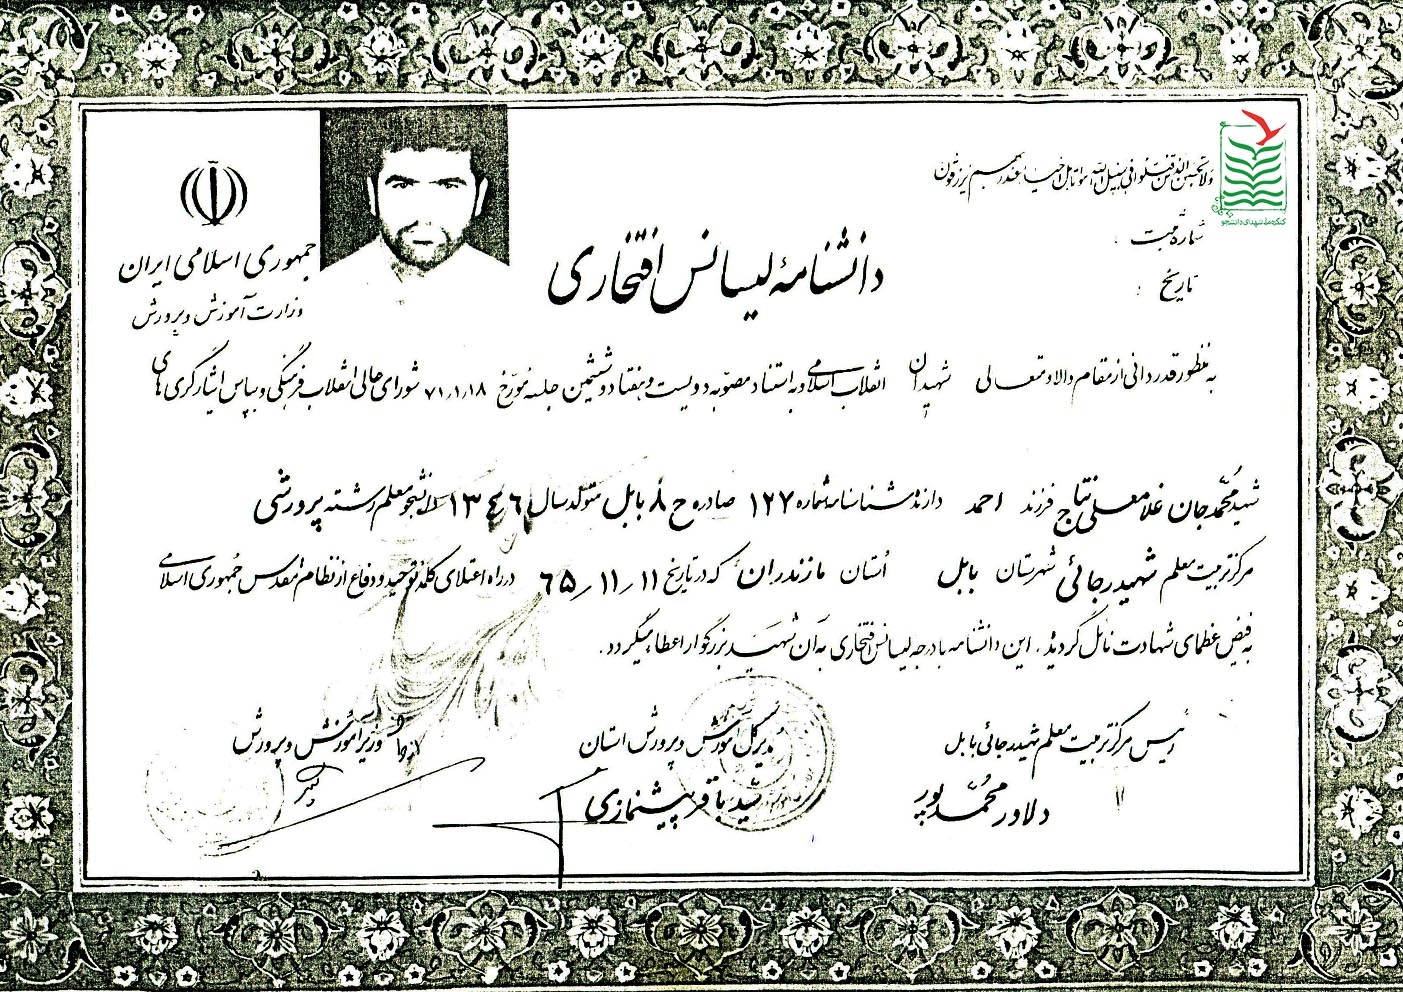 ولا تحسبن الذین قتلوا فی سبیل الله امواتا بل احیاء عند ربهم یرزقون
کنگره ملی شهدای دانشجو
شماره ثبت :
تاریخ :
جمهوری اسلامی ایران
وزارت آموزش و پرورش
دانشنامهٔ لیسانس افتخاری
به منظور قدردانی از مقام والا و متعالی شهیدان انقلاب اسلامی و به استناد مصوبه دویست و هفتاد و ششمین جلسه مورخ ۷۱٫۱٫۱۸ شورای عالی انقلاب فرهنگی و بپاس ایثارگری های
شهید محمدجان غلامعلی نتاج فرزند احمد دارنده شناسنامه شماره ۱۲۷ صادره ح ۸ بابل متولد سال ۱۳۴۶ دانشجو معلم رشته پرورشی
مرکز تربیت معلم شهید رجائی شهرستان بابل استان مازندران که در تاریخ ۶۵٫۱۱٫۱۱ در راه اعتلای کلمه توحید و دفاع از نظام مقدس جمهوری اسلامی
به فیض عظمای شهادت نائل گردید . این دانشنامه با درجه لیسانس افتخاری به آن شهید بزرگوار اعطاء میگردد .
رئیس مرکز تربیت معلم شهید رجائی بابل
دلاور محمدپور
مدیر کل آموزش و پرورش استان
سید باقر پیشنمازی
از طرف وزیر آموزش و پرورش